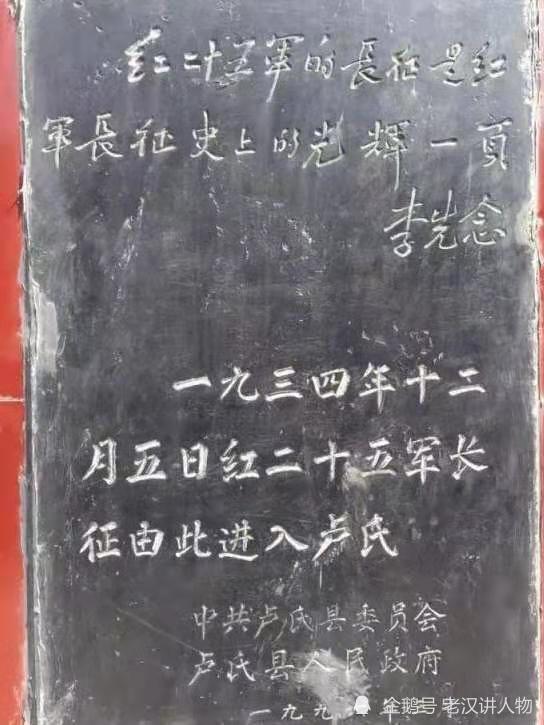 红二十五軍的長征是红
軍長征史上的光輝一頁
李先念
一九三四年十二
月五日红二十五军长
征由此进入卢氏
中共卢氏县委员会
卢氏县人民政府
一九九
年
企鹅号 老汉讲人物